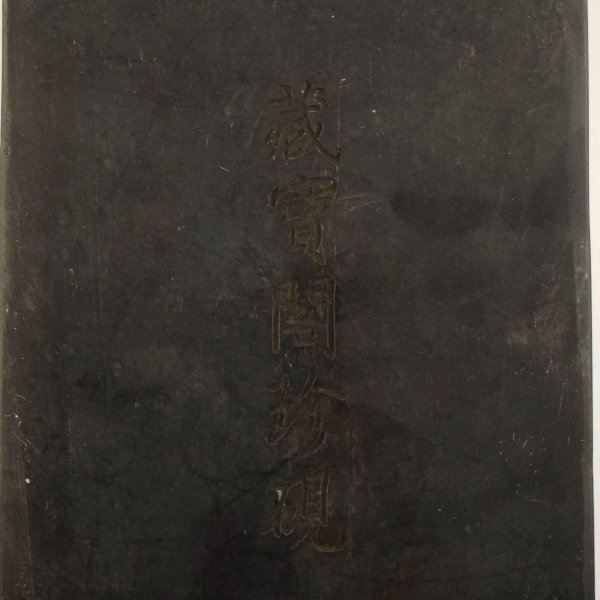 藏寶閣珍硯